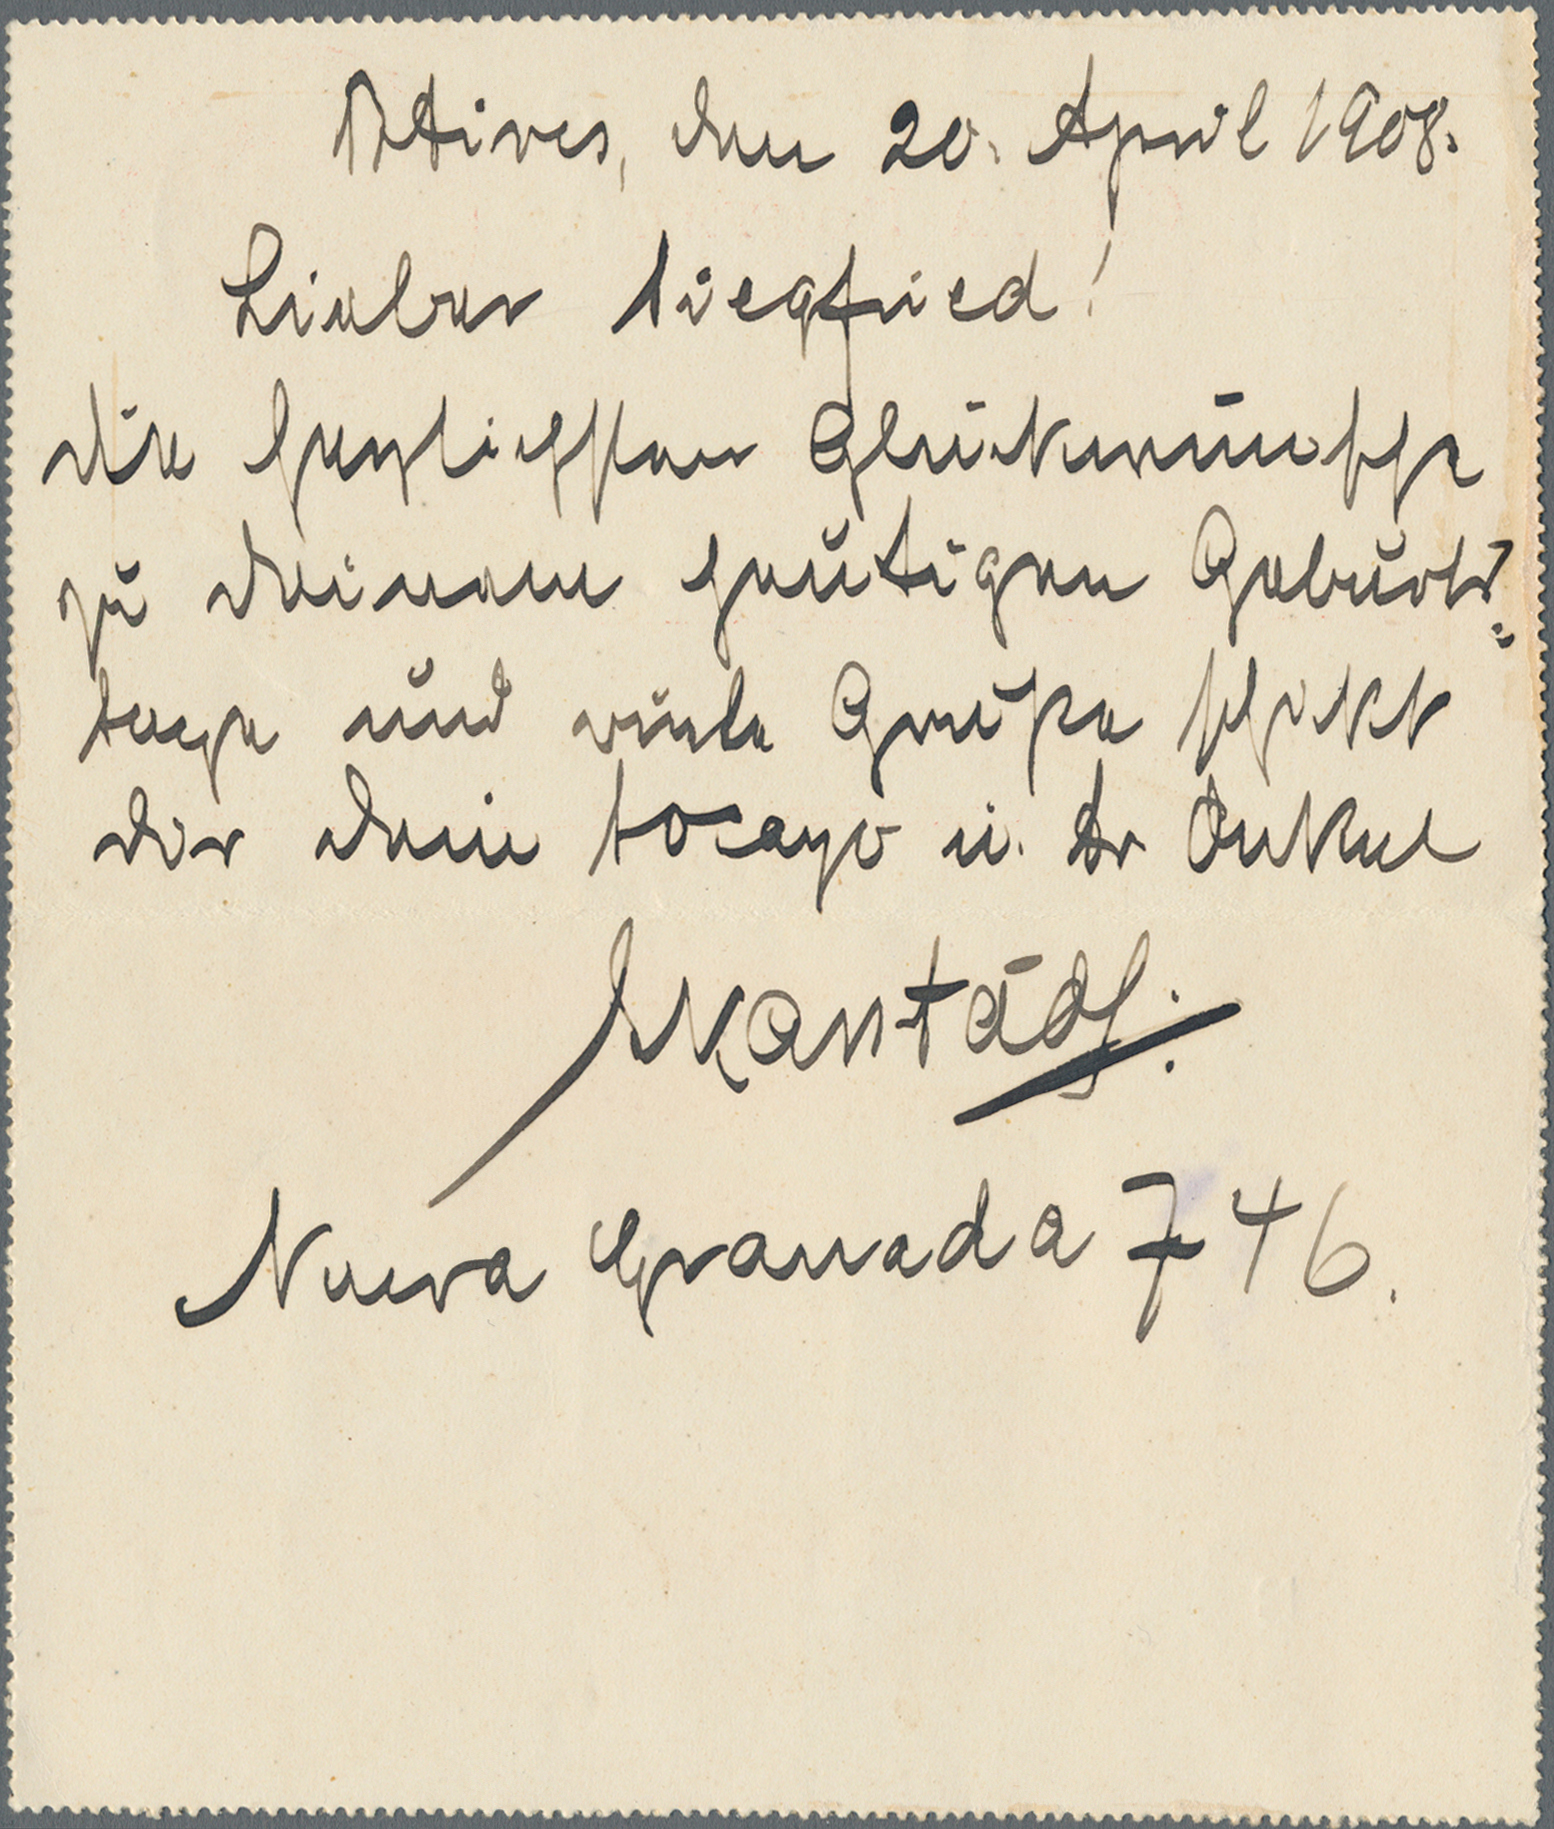 BAires, den 20. April 1908.
Lieber Siegfried!
die herzlichsten Glückwünsche
zu deinem heutigen Geburts=
tage und viele Grüße schickt
dir dein tocayo u. Dr Onkel
Nueva Granada 746.